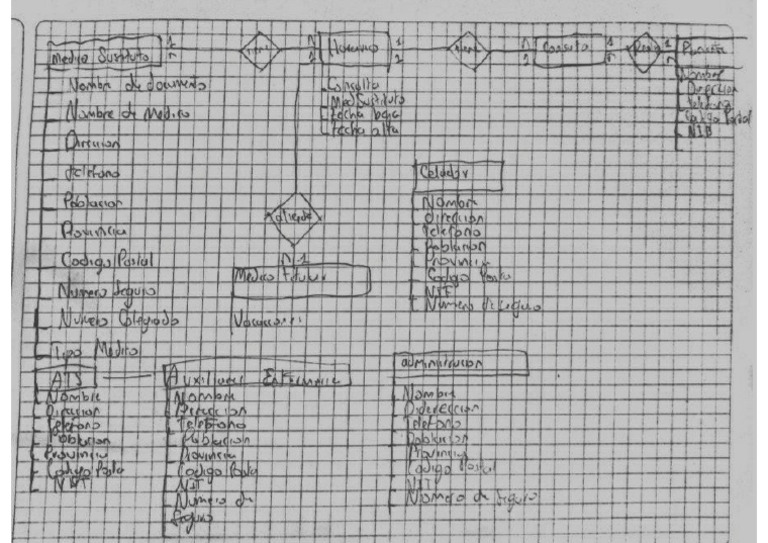 Medico Sustituto
Nombre de documento
Nombre de Medico
Direccion
telefono
Poblacion
Provincia
Codigo Postal
Numero Seguro
Numero Colegiado
Tipo Medico
n
tiene
n
1
Horario
1
1
Consulta
Med Sustituto
Fecha baja
Fecha alta
tiene
n
1
Consulta
1
n
1
n
Nombre
Direccion
telefono
Codigo Postal
NIB
atiende
n 1
Medico titular
Vacaciones
Celador
Nombre
direccion
telefono
Poblacion
Provincia
Codigo Posta
NIT
Numero de Seguro
ATS
Nombre
Direccion
Telefono
Poblacion
Provincia
Codigo Posta
NIT
Auxiliares Enfermeria
Nombre
Direccion
Telefono
Poblacion
Provincia
Codigo Posta
NIT
Numero de
Seguro
administracion
Nombre
Telefono
Poblacion
Provincia
Codigo Postal
NIT
Numero de Seguro